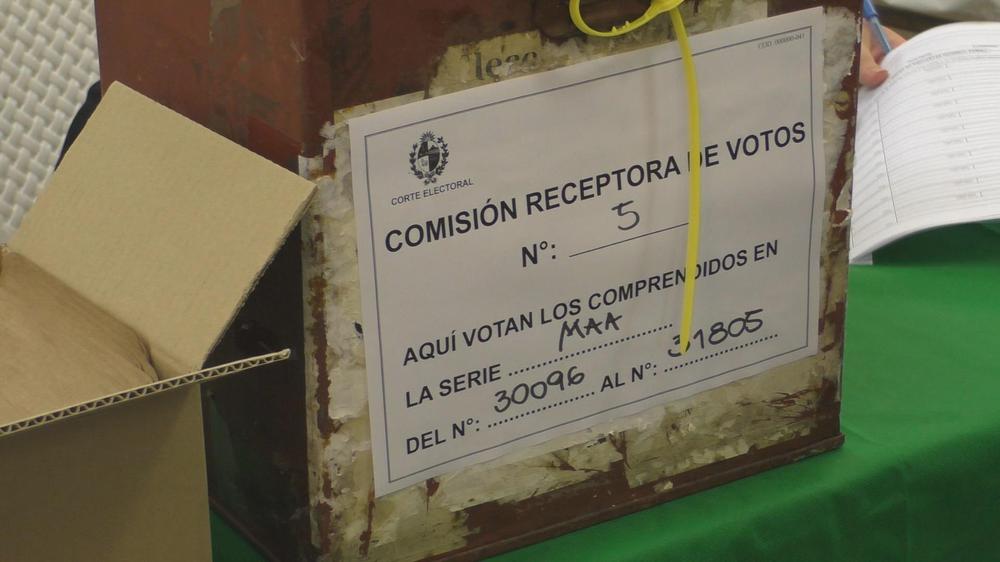 CORTE ELECTORAL
COMISIÓN RECEPTORA DE VOTOS
N°: 5
AQUÍ VOTAN LOS COMPRENDIDOS EN
LA SERIE MAA
DEL N°: 30096 AL N°: 31805